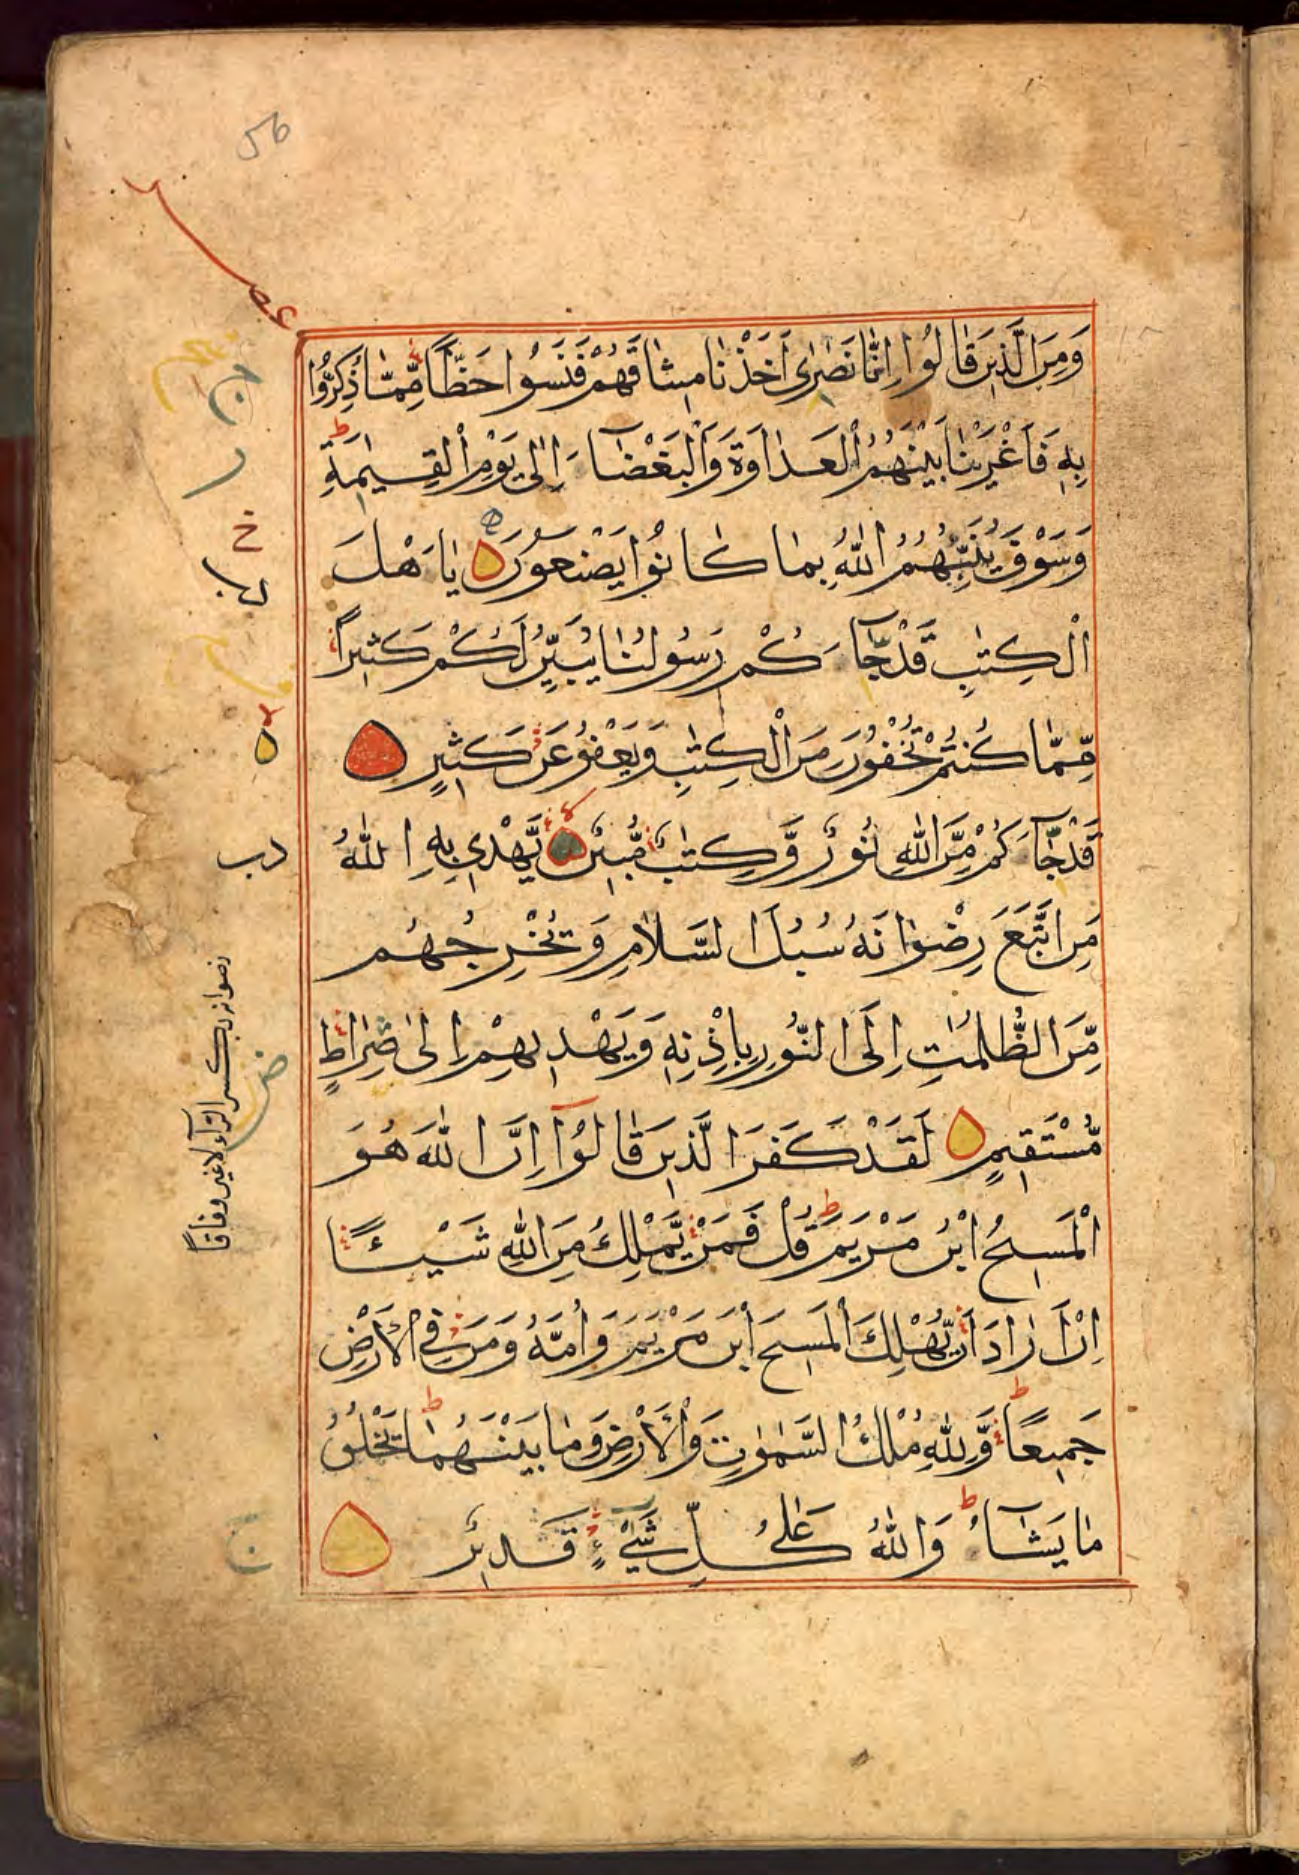 56
عشر
وَمِنَ الَّذِينَ قَالُوا إِنَّا نَصٰرٰى أَخَذْنَا مِيثَاقَهُمْ فَنَسُوا حَظًّا مِّمَّا ذُكِّرُوا
بِهِ فَأَغْرَيْنَا بَيْنَهُمُ الْعَدَاوَةَ وَالْبَغْضَاءَ إِلٰى يَوْمِ الْقِيٰمَةِ
وَسَوْفَ يُنَبِّئُهُمُ اللّٰهُ بِمَا كَانُوا يَصْنَعُونَ يَا أَهْلَ
الْكِتٰبِ قَدْ جَاءَكُمْ رَسُولُنَا يُبَيِّنُ لَكُمْ كَثِيرًا
مِّمَّا كُنتُمْ تُخْفُونَ مِنَ الْكِتٰبِ وَيَعْفُو عَنْ كَثِيرٍ
قَدْ جَاءَكُمْ مِّنَ اللّٰهِ نُورٌ وَّكِتٰبٌ مُّبِينٌ يَّهْدِي بِهِ اللّٰهُ
مَنِ اتَّبَعَ رِضْوَانَهُ سُبُلَ السَّلَامِ وَيُخْرِجُهُم
مِّنَ الظُّلُمٰتِ إِلَى النُّورِ بِإِذْنِهِ وَيَهْدِيهِمْ إِلٰى صِرَاطٍ
مُّسْتَقِيمٍ لَقَدْ كَفَرَ الَّذِينَ قَالُوا إِنَّ اللّٰهَ هُوَ
الْمَسِيحُ ابْنُ مَرْيَمَ قُلْ فَمَنْ يَّمْلِكُ مِنَ اللّٰهِ شَيْئًا
إِنْ أَرَادَ أَنْ يُّهْلِكَ الْمَسِيحَ ابْنَ مَرْيَمَ وَأُمَّهُ وَمَنْ فِي الْأَرْضِ
جَمِيعًا وَّلِلّٰهِ مُلْكُ السَّمٰوٰتِ وَالْأَرْضِ وَمَا بَيْنَهُمَا يَخْلُقُ
مَا يَشَاءُ وَاللّٰهُ عَلٰى كُلِّ شَيْءٍ قَدِيرٌ
ج
ر
خ
دب
رضوانه بكسر الراء لاغير وفاقا
ض
ج